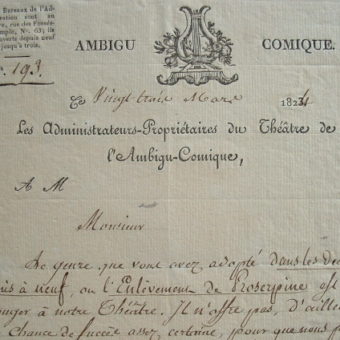 Bureaux de l'Ad-
ration sont au
, rue des Fossés-
mple, N°. 63; ils
uverts depuis neuf
jusqu'à trois.
°. 193.
AMBIGU COMIQUE.
Ce Vingt-trois Mars 1824
Les Administrateurs-Propriétaires du Théâtre de
l'Ambigu-Comique,
A M
Monsieur
Le genre que vous avez adopté dans les De
is à neuf, ou l'Enlèvement de Proserpine est
anger à notre Théâtre. Il n'offre pas, d'ailleu
Chance de succès assez certaine, pour que nous p